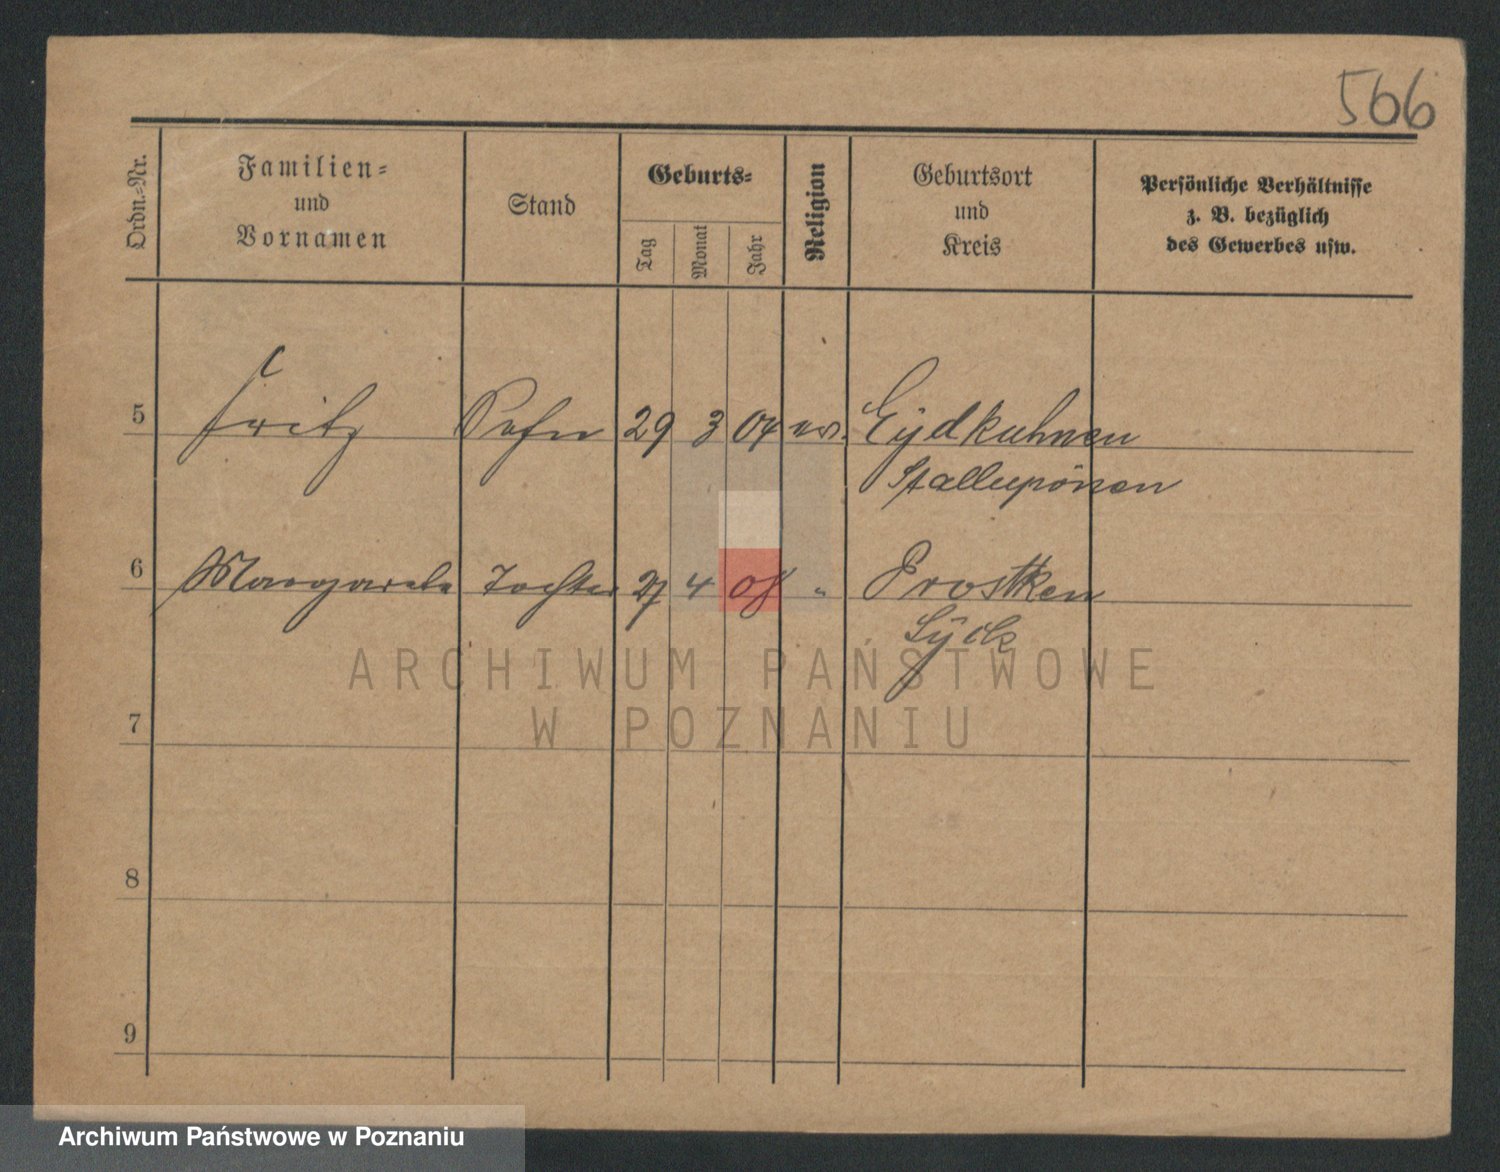 566
Ordn.=Nr.
Familien=
und
Vornamen
Stand
Geburts=
Tag
Monat
Jahr
Religion
Geburtsort
und
Kreis
Persönliche Verhältnisse
z. B. bezüglich
des Gewerbes usw.
5 Fritz Sohn 29 3 04 ev. Eydkuhnen
Stallupönen
6 Margarete Tochter 27 4 08 " Prostken
Lyck
ARCHIWUM PAŃSTWOWE
W POZNANIU
7
8
9
Archiwum Państwowe w Poznaniu